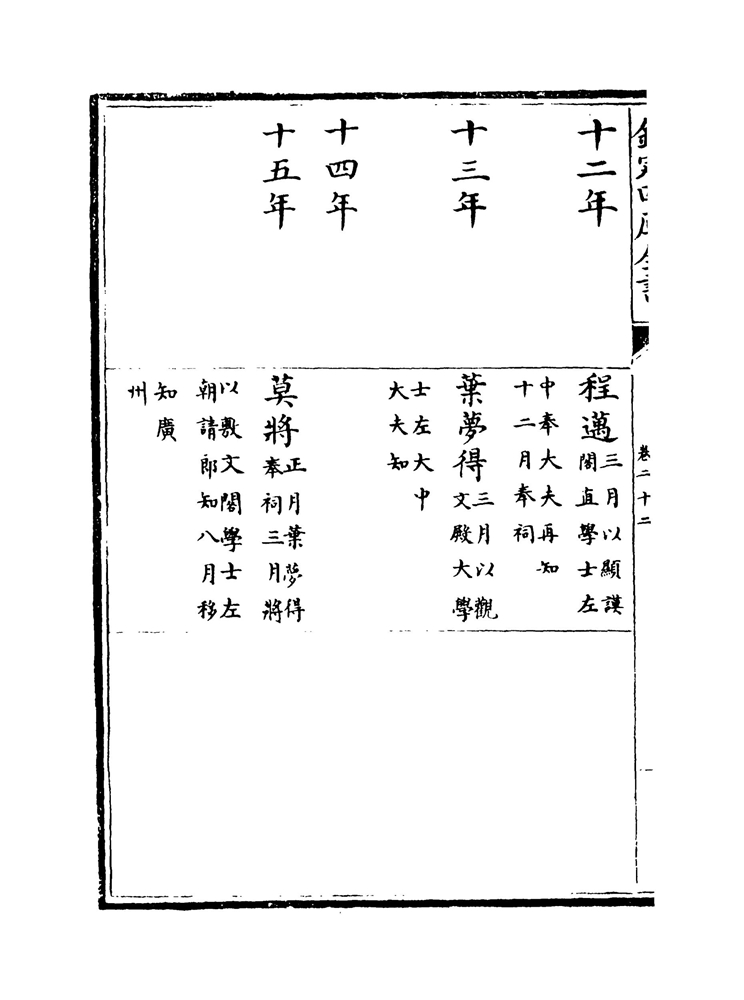 欽定四庫全書
卷二十二
十二年
程邁
三月以顯謨
閣直學士左
中奉大夫再知
十二月奉祠
十三年
葉夢得
三月以觀
文殿大學
士左大中
大夫知
十四年
十五年
莫將
正月葉夢得
奉祠三月將
以敷文閣學士左
朝請郎知八月移
知廣
州